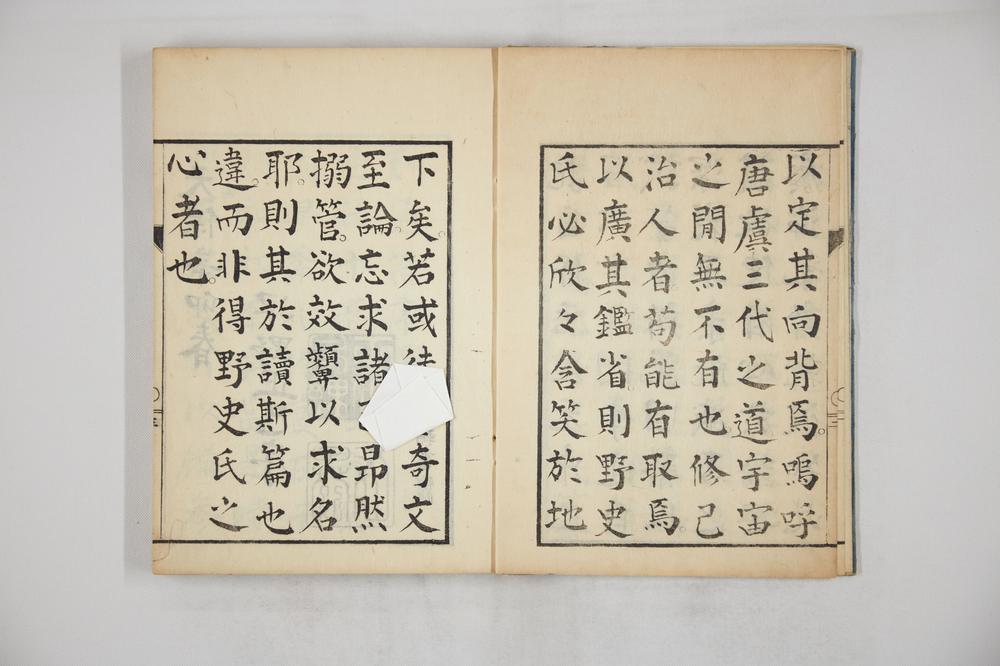 以定其向背焉。嗚呼
唐虞三代之道宇宙
之間無不有也修己
治人者苟能有取焉
以廣其鑑省則野史
氏必欣々含笑於地
下矣。若或徒奇文
至論。忘求諸昻然
搦管。欲效顰以求名
耶。則其於讀斯篇也
違。而非得野史氏之
心者也。